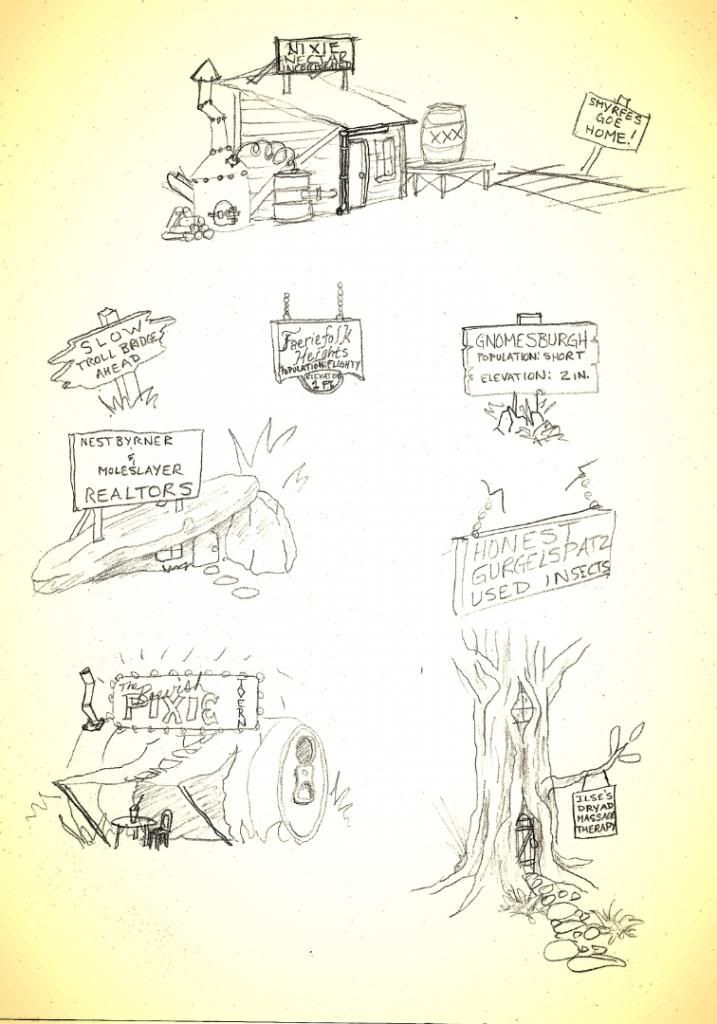 NIXIE
NECTAR
INCORPORATED
XXX
SMYRFES
GOE
HOME!
SLOW
TROLL BRIDGE
AHEAD
Faeriefolk
Heights
POPULATION: FLIGHTY
ELEVATION
1 FT.
GNOMESBURGH
POPULATION: SHORT
ELEVATION: 2 IN.
NESTBYRNER
&
MOLESLAYER
REALTORS
HONEST
GURGELSPATZ
USED INSECTS
The Peevish
PIXIE
TAVERN
ILSE'S
DRYAD
MASSAGE
THERAPY